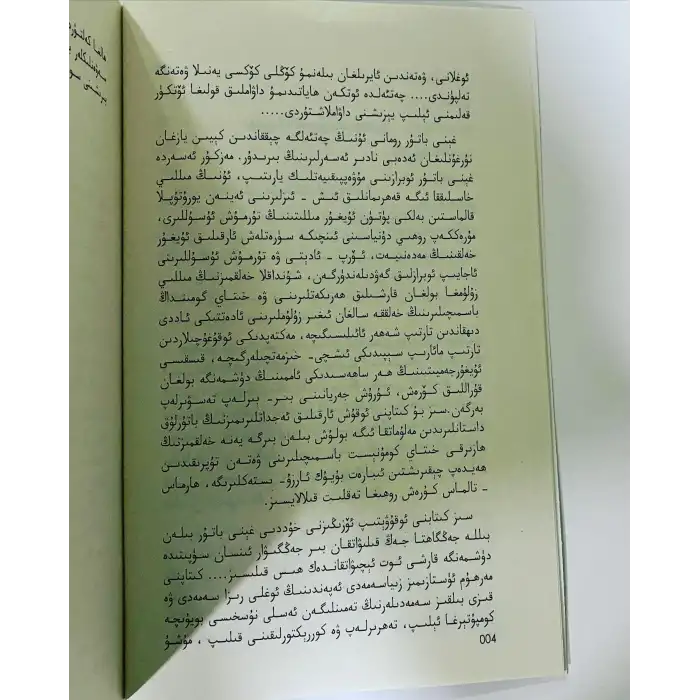 ئوغلانى، ۋەتەندىن ئايرىلغان بىلەنمۇ كۆڭلى كۆكسى يەنىلا ۋەتەنگە
تەلپۈندى.... چەتئەلدە ئوتكەن ھاياتىدىمۇ داۋاملىق قولىغا ئۆتكۈر
قەلىمنى ئېلىپ يېزىشنى داۋاملاشتۇردى.....
غېنى باتۇر رومانى ئۇنىڭ چەتئەلگە چىققاندىن كېيىن يازغان
نۇرغۇنلىغان ئەدەبى نادىر ئەسەرلىرىنىڭ بىرىدۇر. مەزكۇر ئەسەردە
غېنى باتۇر ئوبرازىنى مۇۋەپپىقىيەتلىك يارىتىپ، ئۇنىڭ مىللىي
خاسلىققا ئىگە قەھرىمانلىق ئىش - ئىزلىرىنى ئەينەن يورۇتۇپلا
قالماستىن بەلكى پۈتۈن ئۇيغۇر مىللىتىنىڭ تۇرمۇش ئۇسۇللىرى،
مۇرەككەپ روھىي دۇنياسىنى ئىنچىكە سۈرەتلەش ئارقىلىق ئۇيغۇر
خەلقىنىڭ مەدەنىيەت، ئۆرپ - ئادىتى ۋە تۇرمۇش ئۇسۇللىرىنى
ئاجايىپ ئوبرازلىق گەۋدىلەندۈرگەن، شۇنداقلا خەلقىمىزنىڭ مىللىي
زۇلۇمغا بولغان قارشىلىق ھەرىكەتلىرىنى ۋە خىتاي گومىنداڭ
باسمىچىلىرىنىڭ خەلققە سالغان ئېغىر زۇلۇملىرىنى ئادەتتىكى ئاددى
دىھقاندىن تارتىپ شەھەر ئائىلىسىگىچە، مەكتەپدىكى ئوقۇغۇچىلاردىن
تارتىپ مائارىپ سېپىدىكى ئىشچى- خىزمەتچىلەرگىچە، قىسقىسى
ئۇيغۇرجەمىيىتىنىڭ ھەر ساھەسىدىكى ئاممىنىڭ دۈشمەنگە بولغان
قۇراللىق كۆرەش، ئۇرۇش جەريانىنى بىر- بىرلەپ تەسۋىرلەپ
بەرگەن.سىز بۇ كىتاپنى ئوقۇش ئارقىلىق ئەجداتلىرىمىزنىڭ باتۇرلۇق
داستانلىرىدىن مەلۇماتقا ئىگە بولۇش بىلەن بىرگە يەنە خەلقىمىزنىڭ
ھازىرقى خىتاي كومۇنىست باسمىچىلىرىنى ۋەتەن تۇپرىقىدىن
ھەيدەپ چىقىرىشتىن ئىبارەت بۈيۈك ئارزۇ- ئىستەكلىرىگە، ھارماس
- تالماس كۈرەش روھىغا تەقلىت قىلالايسىز.
سىز كىتابنى ئوقۇۋېتىپ ئۆزىڭىزنى خۇددىي غېنى باتۇر بىلەن
بىللە جەڭگاھتا جەڭ قىلىۋاتقان بىر جەڭگىۋار ئىنسان سۈپىتىدە
دۈشمەنگە قارشى ئوت ئېچىۋاتقاندەك ھىس قىلىسىز.... كىتاپنى
مەرھۇم ئۇستازىمىز زىياسەمەدى ئەپەندىنىڭ ئوغلى رىزا سەمەدى ۋە
قىزى بىلقىز سەمەدىلەرنىڭ تەمىنلىگەن ئەسلى نۇسخىسى بويۇنچە
كومپۇتېرغا ئېلىپ، تەھرىرلەپ ۋە كوررېكتورلىقىنى قىلىپ ، مۇشۇ
004